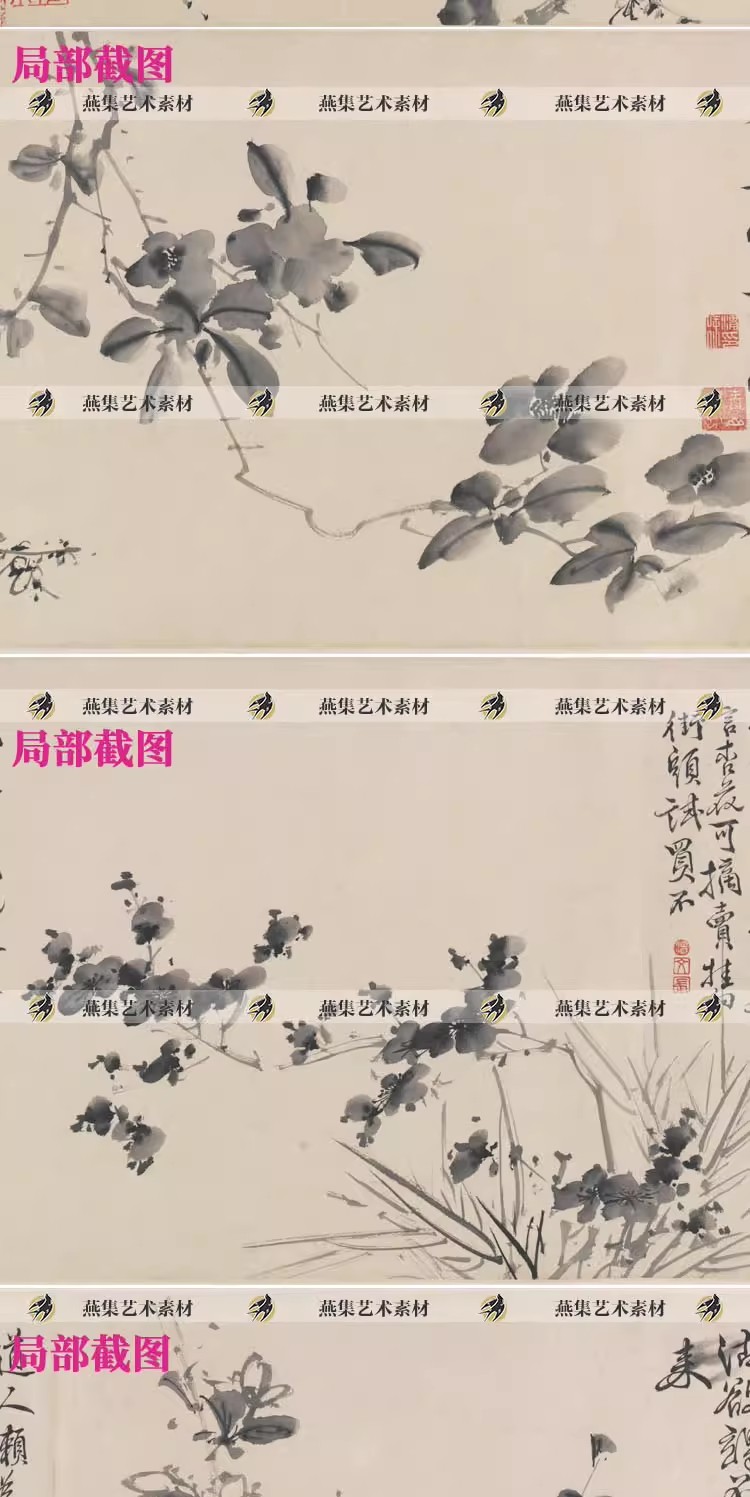 局部截图
燕集艺术素材 燕集艺术素材 燕集艺术素材
燕集艺术素材 燕集艺术素材 燕集艺术素材
燕集艺术素材 燕集艺术素材 燕集艺术素材
局部截图
言杏花可摘賣挂向
街頭試買不
燕集艺术素材 燕集艺术素材 燕集艺术素材
燕集艺术素材 燕集艺术素材 燕集艺术素材
局部截图
来
道人賴